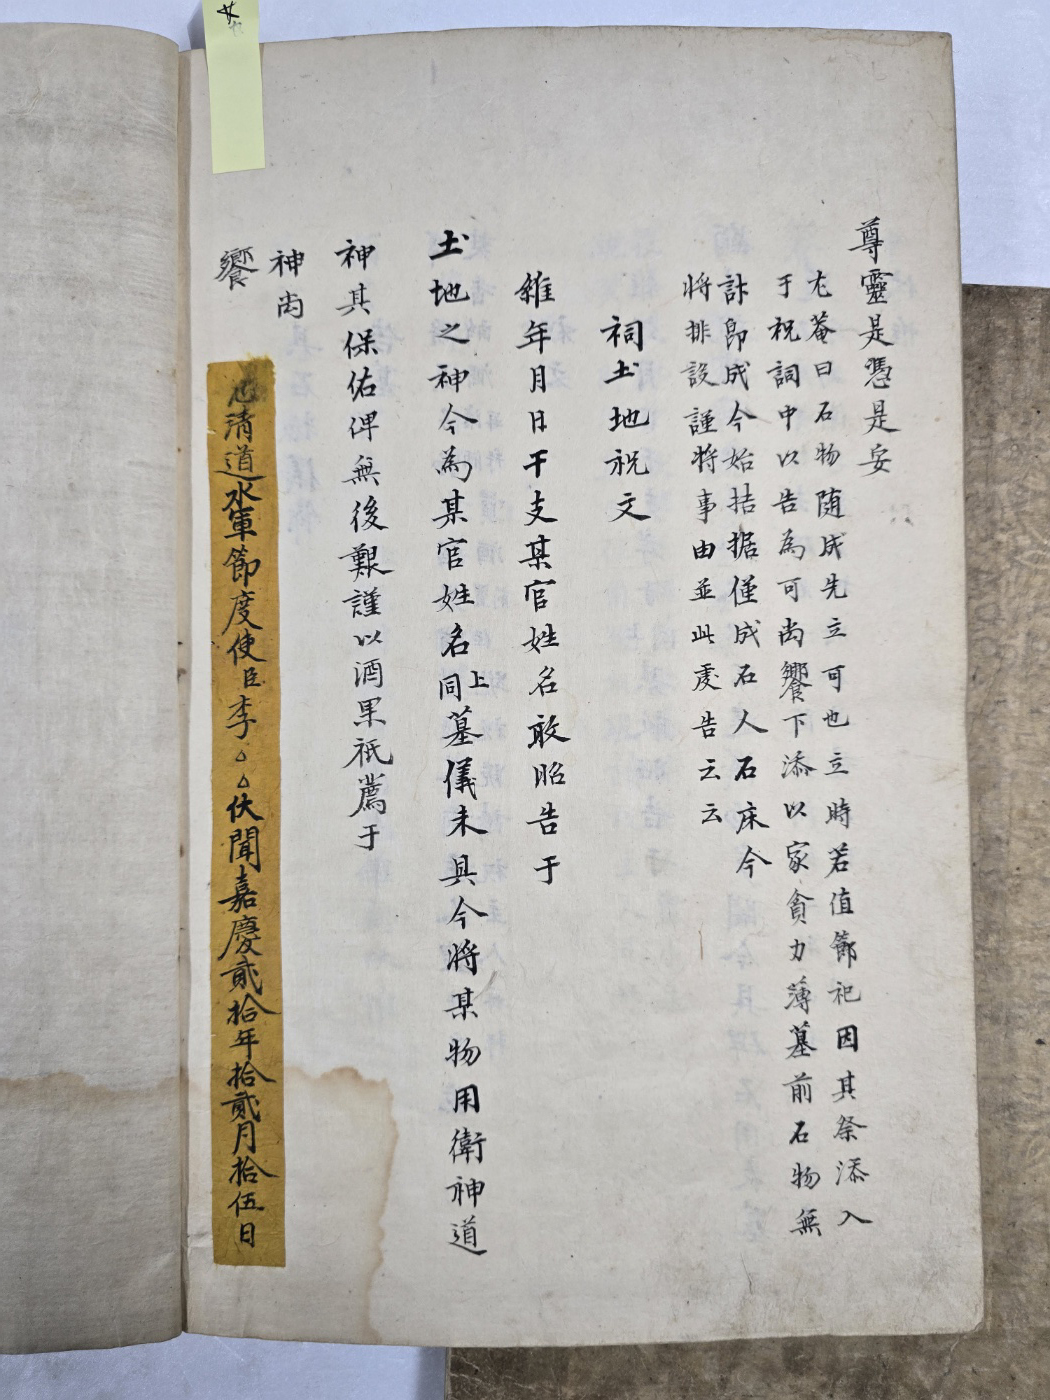 尊靈是憑是安
尤菴曰石物隨成先立可也立時若值節祀因其祭添入
于祝詞中以告為可尚饗下添以家貪力薄墓前石物無
訃卽成今始拮据僅成石人石床今
將排設謹將事由並此處告云云
祠土地祝文
維年月日干支某官姓名敢昭告于
土地之神今為某官姓名同上墓儀未具今將某物用衛神道
神其保佑俾無後艱謹以酒果祇薦于
神尚
饗
忠清道水軍節度使臣李△△伏聞嘉慶貳拾年拾貳月拾伍日